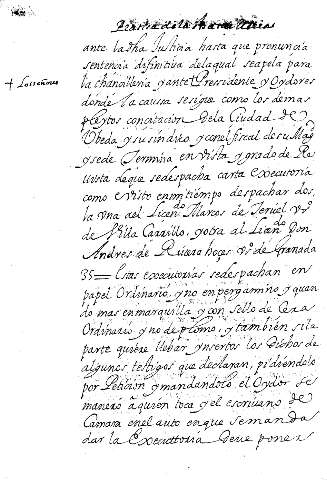 ante la dha Justicia hasta que pronuncia
sentencia difinitiva de la qual se apela para
la chancilleria y ante Presidente y Oydores
donde la causa se sigue como los demas
pleytos con citacion de la Ciudad de
Ubeda y su sindico y con el fiscal de su Magd
y se de Termina en vista y grado de Re
uista de que se despacha carta executoria
como e visto en mi tiempo despachar dos
la Una del Licendo Marcos de Teruel vo
de Villa Carrillo, y otra al Liando Don
Andres de vo de Granada
35 = Estas executorias se despachan en
papel Ordinario, y no en pergamino, y quan
do mas en marquilla y con sello de Cera
Ordinario y no de plomo, y tambien si la
parte quiere lleban ynsertos los Dichos de
algunos testigos que declaran, pidiendolo
por Peticion y mandandolo el Oydor se
manero a quien toca y el escriuano de
Camara en el auto en que se manda
dar la Executtoria deue poner